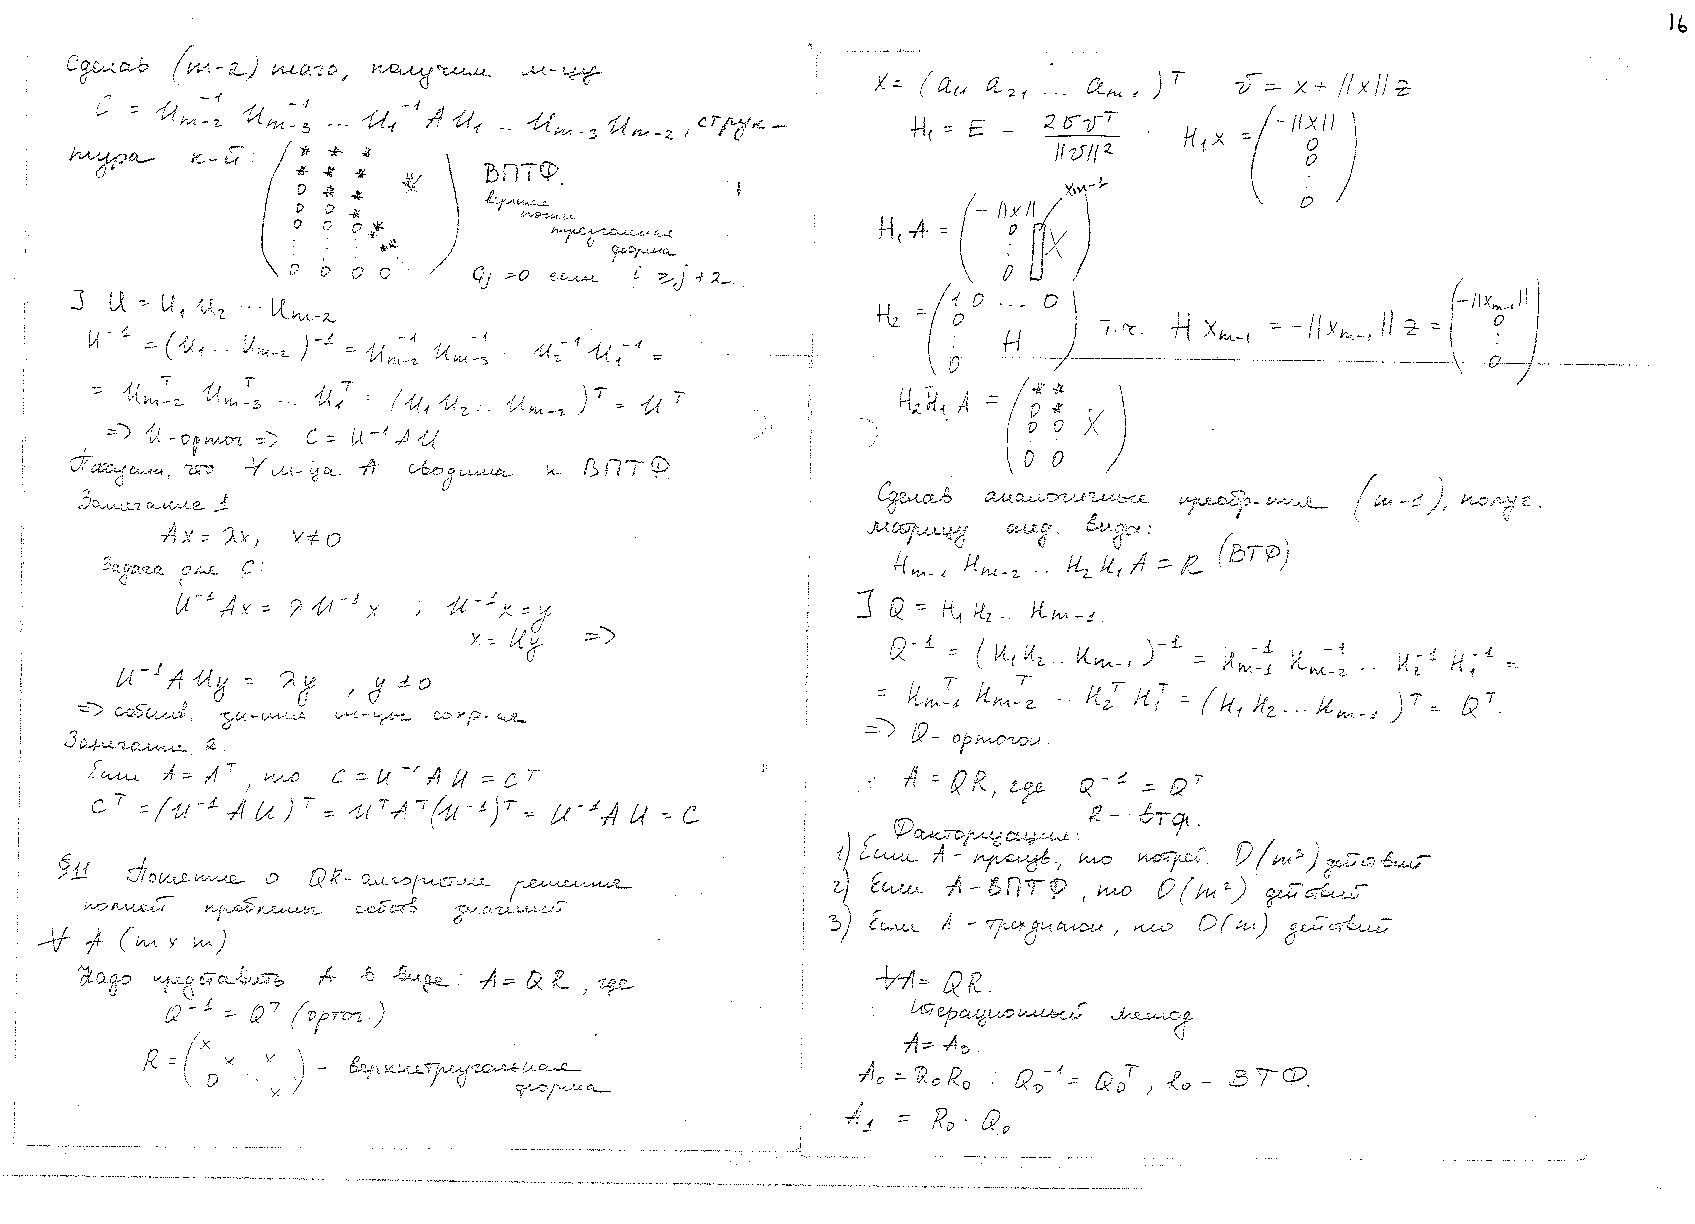 16
Сделав (m-2) шага, получим м-цу
C = U_{m-2}^{-1} U_{m-3}^{-1} ... U_1^{-1} A U_1 ... U_{m-3} U_{m-2}, струк-
тура к-й:
* * *
* * * *
0 * *
0 0 *
0 0 0 *
0 0 0 0
ВПТФ.
верхне
почти
треугольная
форма
C_{ij} = 0 если i ≥ j + 2
] U = U_1 U_2 ... U_{m-2}
U^{-1} = (U_1 ... U_{m-2})^{-1} = U_{m-2}^{-1} U_{m-3}^{-1} . U_2^{-1} U_1^{-1} =
= U_{m-2}^T U_{m-3}^T ... U_1^T = (U_1 U_2 ... U_{m-2})^T = U^T
=> U-ортог => C = U^{-1} A U
Показали, что ∀ м-ца A сводима к ВПТФ.
Замечание 1
Ax = λx, x ≠ 0
Задача для C:
U^{-1} A x = λ U^{-1} x ; U^{-1} x = y
x = Uy =>
U^{-1} A U y = λy , y ≠ 0
=> собств. зн-ния м-цы сохр-ся
Замечание 2.
Если A = A^T, то C = U^{-1} A U = C^T
C^T = (U^{-1} A U)^T = U^T A^T (U^{-1})^T = U^{-1} A U = C
§11 Понятие о QR-алгоритме решения
полной проблемы собств значений
∀ A (m x m)
Надо представить A в виде: A = QR, где
Q^{-1} = Q^T (ортог.)
R = ( x x x 0 x ) - верхнетреугольная
форма
x = (a_{11} a_{21} ... a_{m1})^T v = x + ||x|| z
H_1 = E - 2vv^T / ||v||^2 . H_1 x = ( -||x|| 0 0 ⋮ 0 )
x_{m-1}
H_1 A = ( -||x|| 0 ⋮ 0 X )
H_2 = ( 1 0 ... 0 0 ⋮ 0 H ) т.ч. H x_{m-1} = -||x_{m-1}|| z = ( -||x_{m-1}|| 0 ⋮ 0 )
H_2 H_1 A = ( * * 0 * 0 0 X 0 0 )
Сделав аналогичные преобр-ния (m-1), получ.
матрицу след. вида:
H_{m-1} H_{m-2} ... H_2 H_1 A = R (ВТФ)
] Q = H_1 H_2 ... H_{m-1}.
Q^{-1} = (H_1 H_2 ... H_{m-1})^{-1} = H_{m-1}^{-1} H_{m-2}^{-1} ... H_2^{-1} H_1^{-1} =
= H_{m-1}^T H_{m-2}^T ... H_2^T H_1^T = (H_1 H_2 ... H_{m-1})^T = Q^T.
=> Q - ортогон.
: A = QR, где Q^{-1} = Q^T
R - ВТФ.
Факторизация:
1) Если A - произв, то потреб. O(m^3) действий
2) Если A - ВПТФ, то O(m^2) действий
3) Если A - трехдиагон, то O(m) действий
∀A = QR.
Итерационный метод
A = A_0.
A_0 = Q_0 R_0 : Q_0^{-1} = Q_0^T, R_0 - ВТФ.
A_1 = R_0 · Q_0